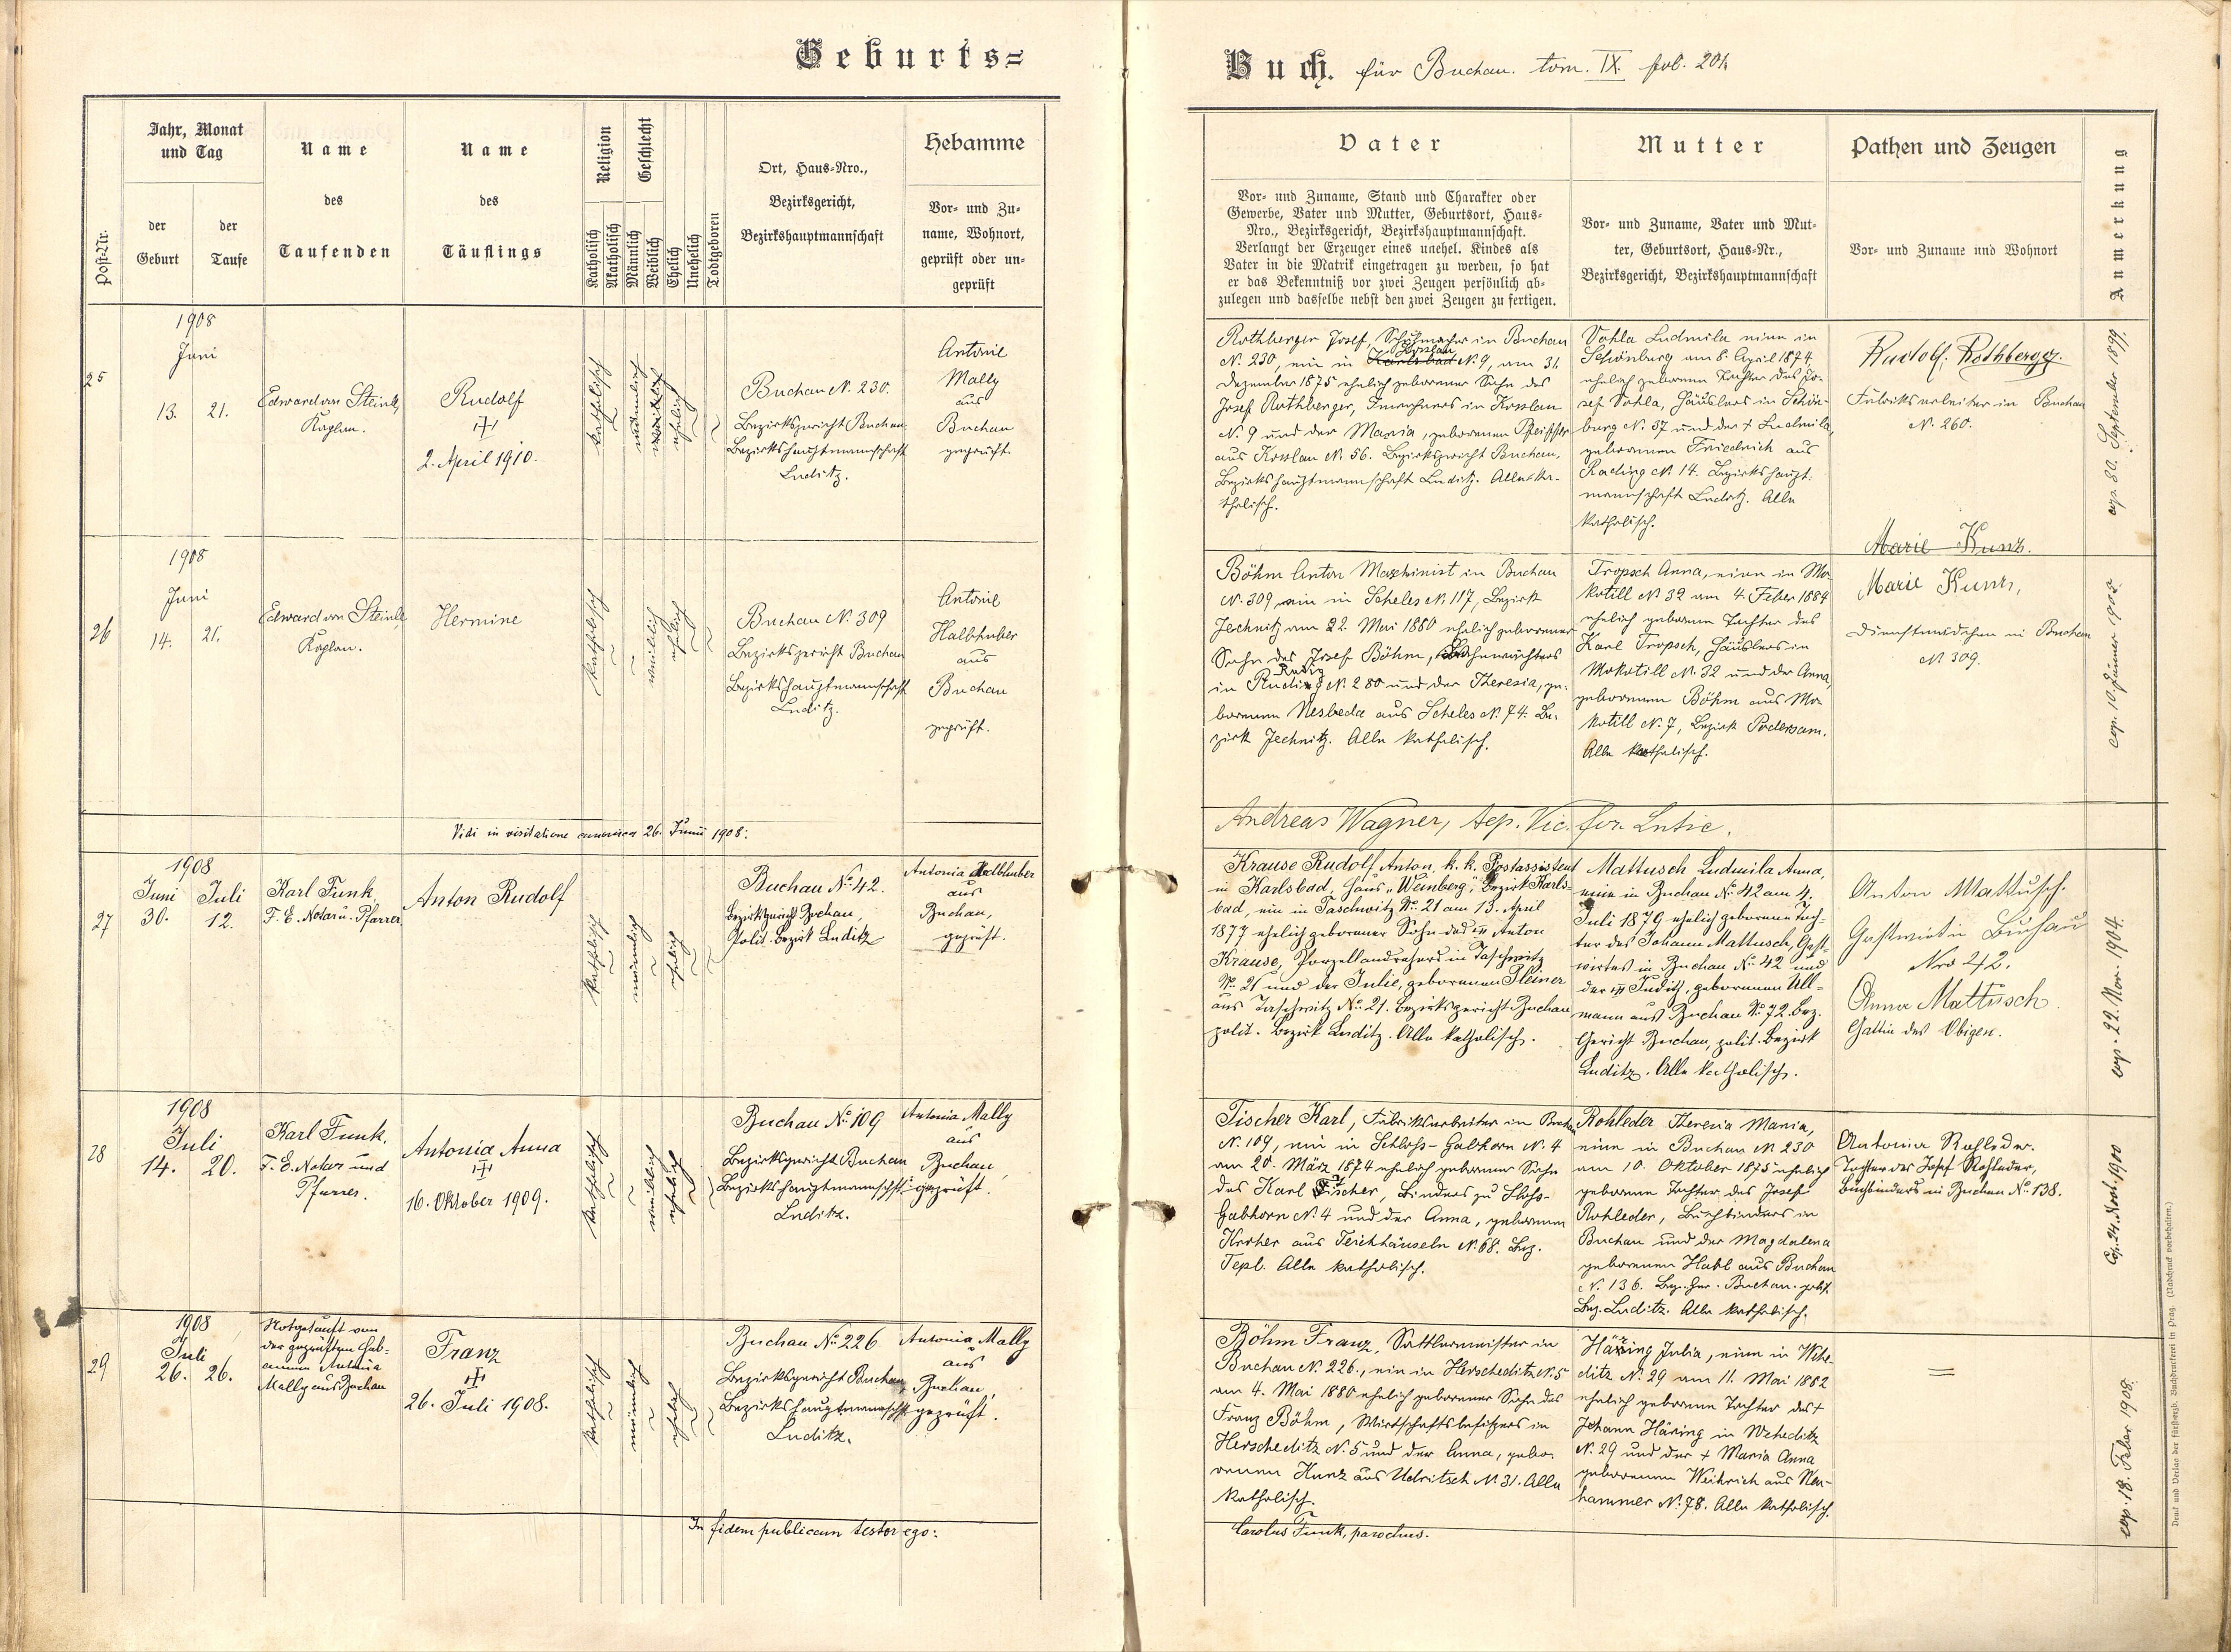 Geburts=
Buch. für Buchau. tom. IX. fol. 201.
Post-Nr.
Jahr, Monat
und Tag
der
Geburt
der
Taufe
Name
des
Taufenden
Name
des
Täuflings
Religion
Katholisch
Akatholisch
Geschlecht
Männlich
Weiblich
Ehelich
Unehelich
Todtgeboren
Ort, Haus=Nro.,
Bezirksgericht,
Bezirkshauptmannschaft
Hebamme
Vor= und Zu=
name, Wohnort,
geprüft oder un=
geprüft
Vater
Vor= und Zuname, Stand und Charakter oder
Gewerbe, Vater und Mutter, Geburtsort, Haus=
Nro., Bezirksgericht, Bezirkshauptmannschaft.
Verlangt der Erzeuger eines unehel. Kindes als
Vater in die Matrik eingetragen zu werden, so hat
er das Bekenntniß vor zwei Zeugen persönlich ab=
zulegen und dasselbe nebst den zwei Zeugen zu fertigen.
Mutter
Vor= und Zuname, Vater und Mut=
ter, Geburtsort, Haus=Nr.,
Bezirksgericht, Bezirkshauptmannschaft
Pathen und Zeugen
Vor= und Zuname und Wohnort
Anmerkung
25
1908
Juni
13. 21.
Edward von Steinl,
Kaplan.
Rudolf
2. April 1910.
katholisch
männlich
weiblich
ehelich
Buchau N. 230.
Bezirksgericht Buchau
Bezirkshauptmannschaft
Luditz.
Antonie
Mally
aus
Buchau
geprüft.
Rothberger Josef, Schuhmacher in Buchau
N. 230, ein in Karlsbad Kosslau N. 9, am 31.
Dezember 1875 ehelich geborener Sohn des
Josef Rothberger, Inwohners in Kosslau
N. 9 und der Maria, geborenen
aus Kosslau N. 56. Bezirksgericht Buchau,
Bezirkshauptmannschaft Luditz. Alle ka-
tholisch.
Vohla Ludmila eine in
Schönburg am 8. April 1874
ehelich geborene Tochter des Jo-
sef Vohla, Häuslers in Schön-
burg N. 37 und der † Ludmila,
geborenen Friedrich aus
Rading N. 14. Bezirkshaupt-
mannschaft Luditz. Alle
katholisch.
Rudolf Rothberger.
Fabriksarbeiter in Buchau
N. 260.
cop. 30. September 1899.
26
1908
Juni
14. 21.
Edward von Steinl
Kaplan.
Hermine
katholisch
weiblich
ehelich
Buchau N. 309
Bezirksgericht Buchau
Bezirkshauptmannschaft
Luditz.
Antonie
Halbhuber
aus
Buchau
geprüft.
Böhm Anton Maschinist in Buchau
N. 309 ein in Scheles N. 117, Bezirk
Jechnitz am 22. Mai 1880 ehelich geborener
Sohn des Josef Böhm, Bahnwächters
in Rudig N. 280 und der Theresia, ge-
borenen Nesbeda aus Scheles N. 74. Be-
zirk Jechnitz. Alle katholisch.
Tropsch Anna, eine in Mo-
kotill N. 32 am 4. Feber 1884
ehelich geborene Tochter des
Karl Tropsch, Häuslers in
Mokotill N. 32 und der Anna,
geborenen Böhm aus Mo-
kotill N. 7, Bezirk Podersam.
Alle katholisch.
Marie Kunz.
Marie Kunz,
Dienstmädchen in Buchau
N. 309.
cop. 10. Jänner 1903.
Vidi in visitatione canonica 26. Junii 1908:
Andreas Wagner, Aep. Vic. for. Lutic.
27
1908
Juni Juli
30. 12.
Karl Funk,
F. E. Notar u. Pfarrer
Anton Rudolf
katholisch
männlich
ehelich
Buchau No. 42.
Bezirksgericht Buchau,
Polit. Bezirk Luditz
Antonia Halbhuber
aus
Buchau,
geprüft.
Krause Rudolf Anton, k. k. Postassistent
in Karlsbad, Haus „Weinberg", Bezirk Karls-
bad, ein in Taschwitz No. 21 am 13. April
1877 ehelich geborener Sohn des Anton
Krause, Porzellandrehers in Taschwitz
No. 21 und der Julie, geborenen Pleiner
aus Taschwitz No. 21. Bezirksgericht Buchau,
polit. Bezirk Luditz. Alle katholisch.
Mattusch Ludmila Anna,
eine in Buchau No. 42 am 4.
Juli 1879 ehelich geborene Toch-
ter des Johann Mattusch, Gast-
wirtes in Buchau No. 42 und
der Judith, geborenen Ull-
mann aus Buchau No. 72. Bez.
Gericht Buchau, polit. Bezirk
Luditz. Alle katholisch.
Anton Mattusch.
Gastwirt in Buchau
Nro 42.
Anna Mattusch
Gattin des Obigen.
cop. 22. Nov. 1904.
28
1908
Juli
14. 20.
Karl Funk.
F. E. Notar und
Pfarrer.
Antonia Anna
16. Oktober 1909.
katholisch
weiblich
ehelich
Buchau No. 109
Bezirksgericht Buchau
Bezirkshauptmannschft:
Luditz.
Antonia Mally
aus
Buchau,
geprüft.
Tischer Karl, Fabriksarbeiter in Buchau
N. 109, ein in Schloss-Gabhorn N. 4
am 20. März 1874 ehelich geborener Sohn
des Karl Tischer, Binders zu Schloss-
Gabhorn N. 4 und der Anna, geborenen
Kroher aus Teichhäuseln N. 68. Bez.
Tepl. Alle katholisch.
Rohleder Theresia Maria,
eine in Buchau N. 230
am 10. Oktober 1875 ehelich
geborene Tochter des Josef
Rohleder, Buchbinders in
Buchau und der Magdalena
geborenen Habl aus Buchau
N. 136. Bez. Ger. Buchau. polit.
Bez. Luditz. Alle katholisch.
Antonia Rohleder.
Tochter des Josef Rohleder,
Buchbinders in Buchau No. 138.
Cop. 24. Nov. 1900
29
1908
Juli
26. 26.
Notgetauft von
der geprüften Heb-
amme Antonia
Mally aus Buchau
Franz
26. Juli 1908.
katholisch
männlich
ehelich
Buchau No. 226
Bezirksgericht Buchau,
Bezirkshauptmannschft
Luditz.
Antonia Mally
aus
Buchau,
geprüft.
Böhm Franz, Sattlermeister in
Buchau N. 226., ein in Herscheditz N. 5
am 4. Mai 1880 ehelich geborener Sohn des
Franz Böhm, Wirtschaftsbesitzers in
Herscheditz N. 5 und der Anna, gebo-
renen Kunz aus Udritsch N. 31. Alle
katholisch.
Häring Julia, eine in Wehe-
ditz N. 29 am 11. Mai 1882
ehelich geborene Tochter des †
Johann Häring in Weheditz
N. 29 und der † Maria Anna
geborenen Weihrich aus Neu-
hammer N. 78. Alle katholisch.
cop. 18. Feber 1908.
In fidem publicam testor ego:
Carolus Funk, parochus.
Druck und Verlag der fürsterzb. Buchdruckerei in Prag. (Nachdruck vorbehalten.)